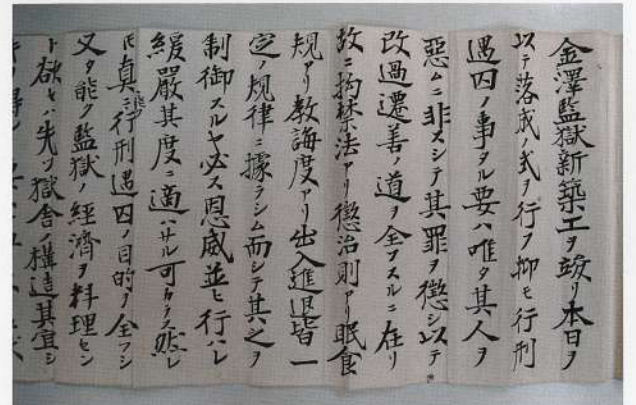 金澤監獄新築工ヲ竣リ本日ヲ
以テ落成ノ式ヲ行フ抑モ行刑
遇囚ノ事タル要ハ唯タ其人ヲ
惡ムニ非スシテ其罪ヲ懲シ以テ
改過遷善ノ道ヲ全フスルニ在リ
故ニ拘禁法アリ懲治則アリ眠食
規アリ教誨度アリ出入進退皆一
定ノ規律ニ據ラシム而シテ其之ヲ
制御スルヤ必ス恩威並ヒ行ハレ
緩嚴其度ニ適ハサル可カラス然レ
𪜈真ニ能ク行刑遇囚ノ目的ヲ全フシ
又タ能ク監獄ノ經濟ヲ料理セン
ト欲セハ先ツ獄舎ノ構造其宜シ